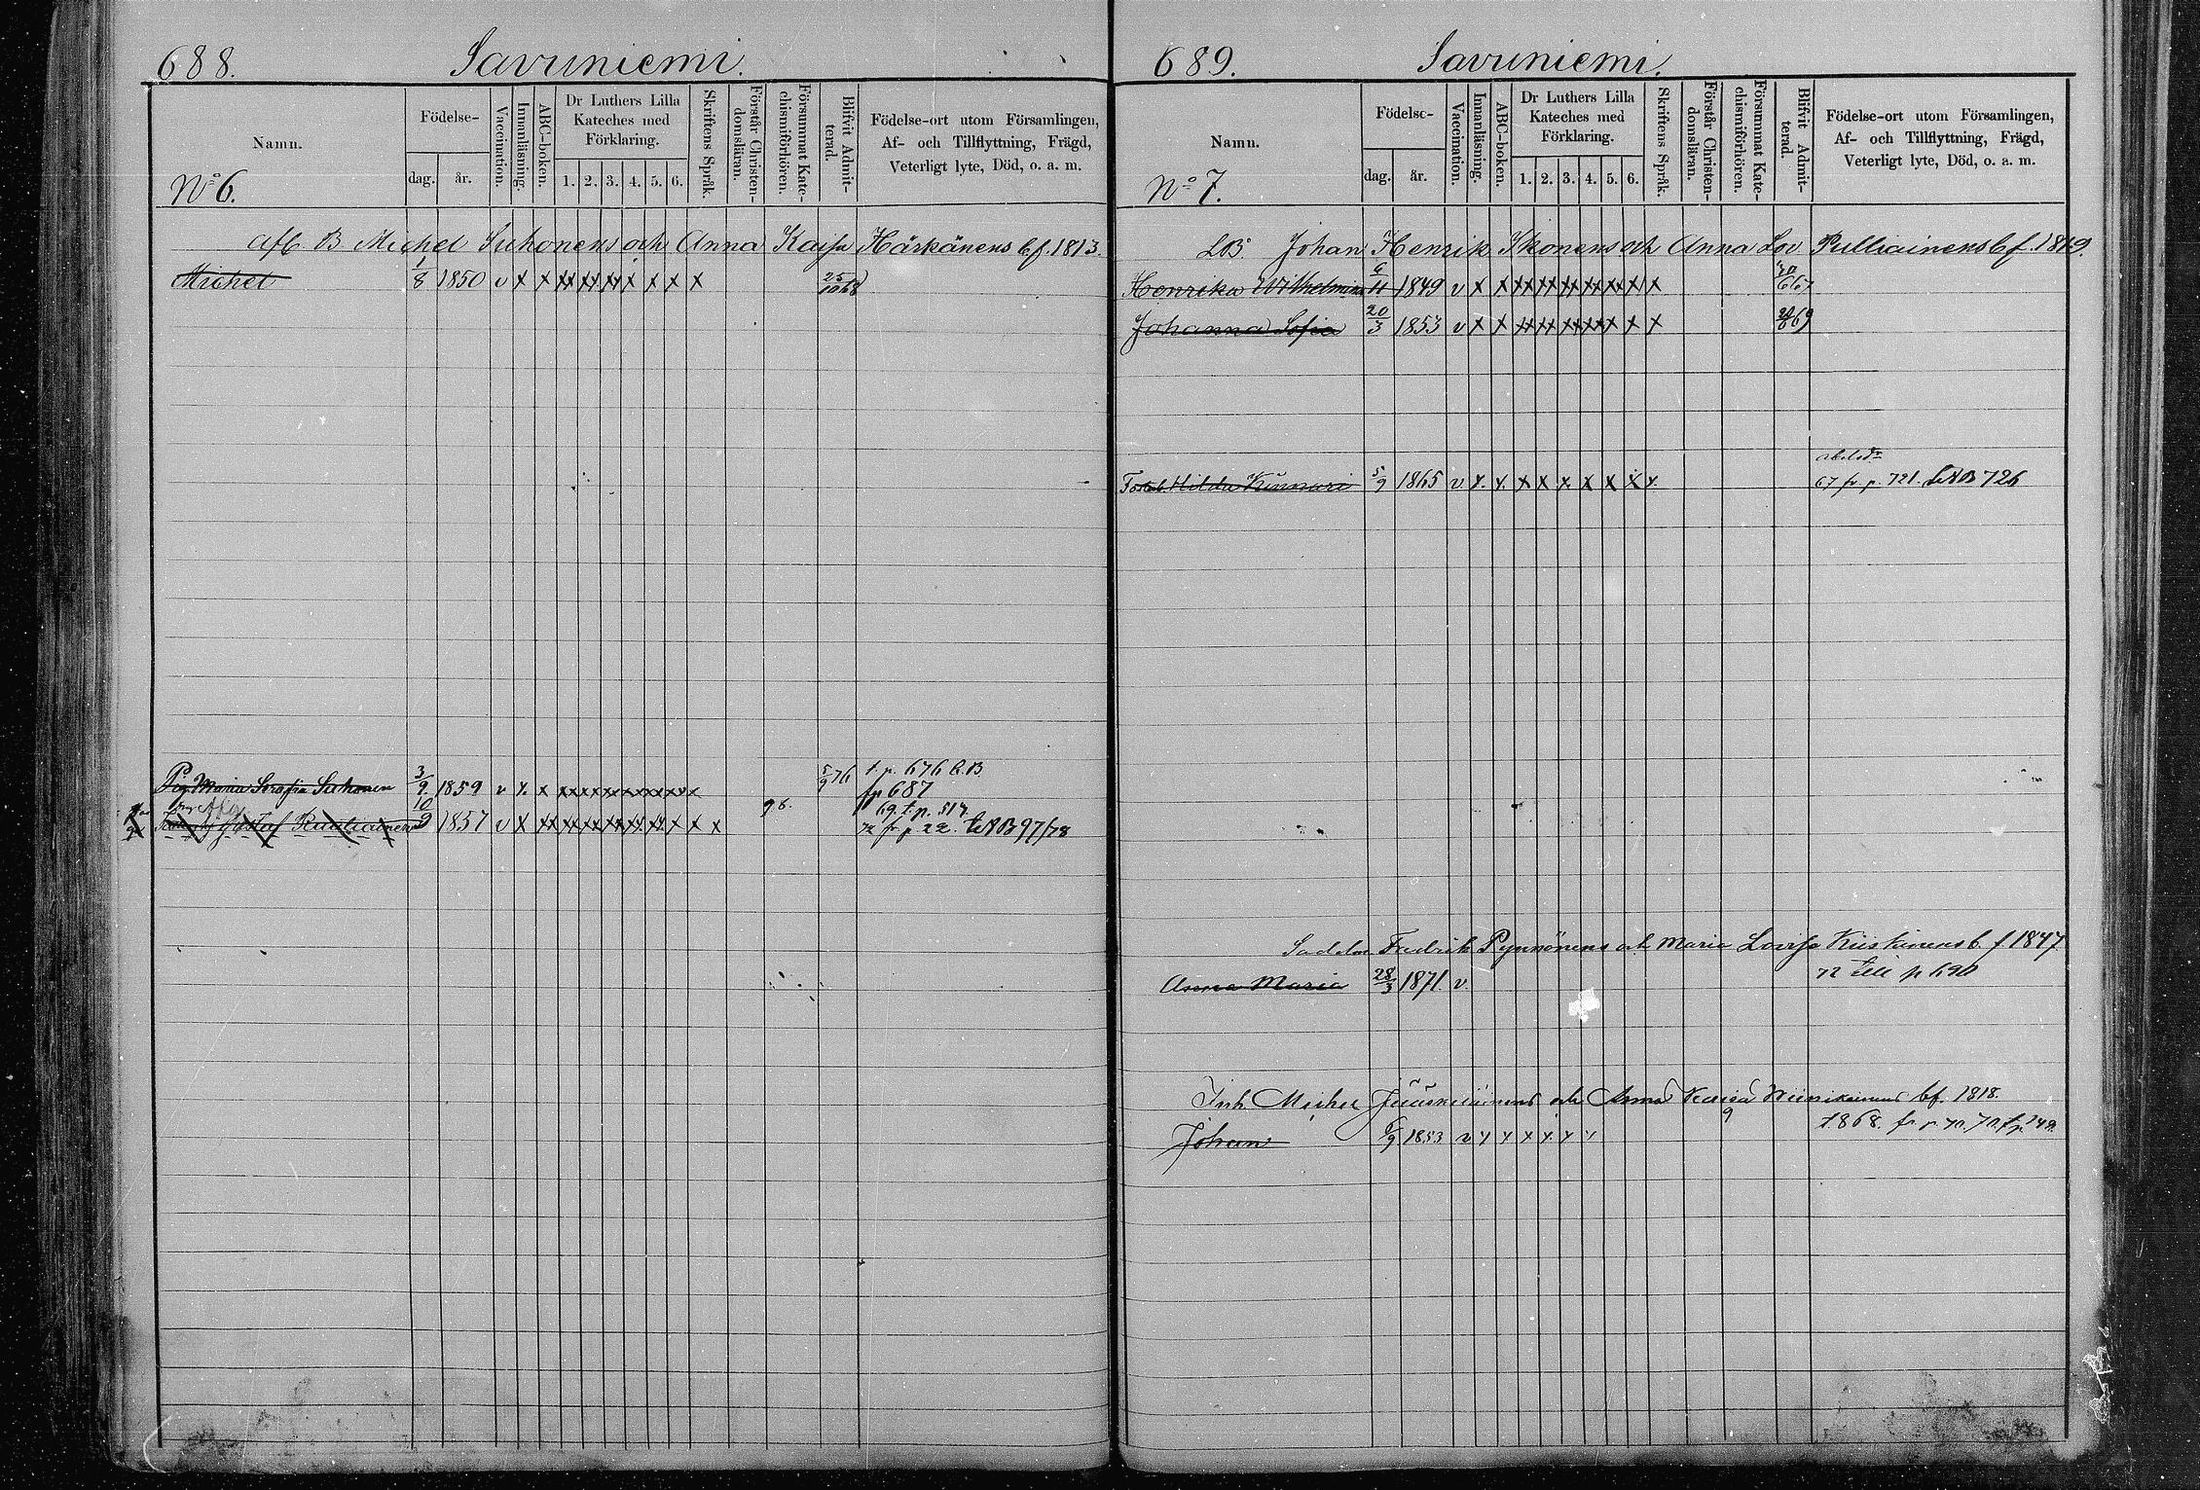 688. Savuniemi.
Namn.
Födelse-
dag. år.
Vaccination.
Innanläsning.
ABC-boken.
Dr Luthers Lilla
Kateches med
Förklaring.
1. 2. 3. 4. 5. 6.
Skriftens Språk.
Förstår Christen-
domsläran.
Försummat Kate-
chismiförhören.
Blifvit Admit-
terad.
Födelse-ort utom Församlingen,
Af- och Tillflyttning, Frägd,
Veterligt lyte, Död, o. a. m.
No 6.
Afl. B Michel Suhonens och Anna Kajsa Härkänens b. f. 1813.
Michel 1/8 1850 v x x xx xx xx x x x x 25/10 68
Pig. Maria Serafia Suhonen 3/9 1859 v x. x 5/9 76 t p. 676 C.B.
fp 687
Gustaf 10/9 1857 v x 69. t. p. 517
72 fr p 22. 97/78
689. Savuniemi.
Namn.
Födelse-
dag. år.
Vaccination.
Innanläsning.
ABC-boken.
Dr Luthers Lilla
Kateches med
Förklaring.
1. 2. 3. 4. 5. 6.
Skriftens Språk.
Förstår Christen-
domsläran.
Försummat Kate-
chismiförhören.
Blifvit Admit-
terad.
Födelse-ort utom Församlingen,
Af- och Tillflyttning, Frägd,
Veterligt lyte, Död, o. a. m.
No 7.
LB. Johan Henrik Ikonens och Anna Lov Pulliainens b f. 1819.
Henrika Wilhelmina 1849 v x x xx xx xx xx x x
Johanna Sofia 20/3 1853 v x x xx xx xx xx x x x 69
Hilda Kinnari 5/9 1865 v x. x. x x x. x x x x. 67 fr p. 721. 726
Fredrik Pynnönens och Maria Lovisa Kiiskinens b. f. 1847
Anna Maria 28/3 1871 v. 72 till p 690
Inh. Michel och Anna Kaisa bf. 1818.
Johan 1853 v x x x x. x x 1868. fr. p. 70.